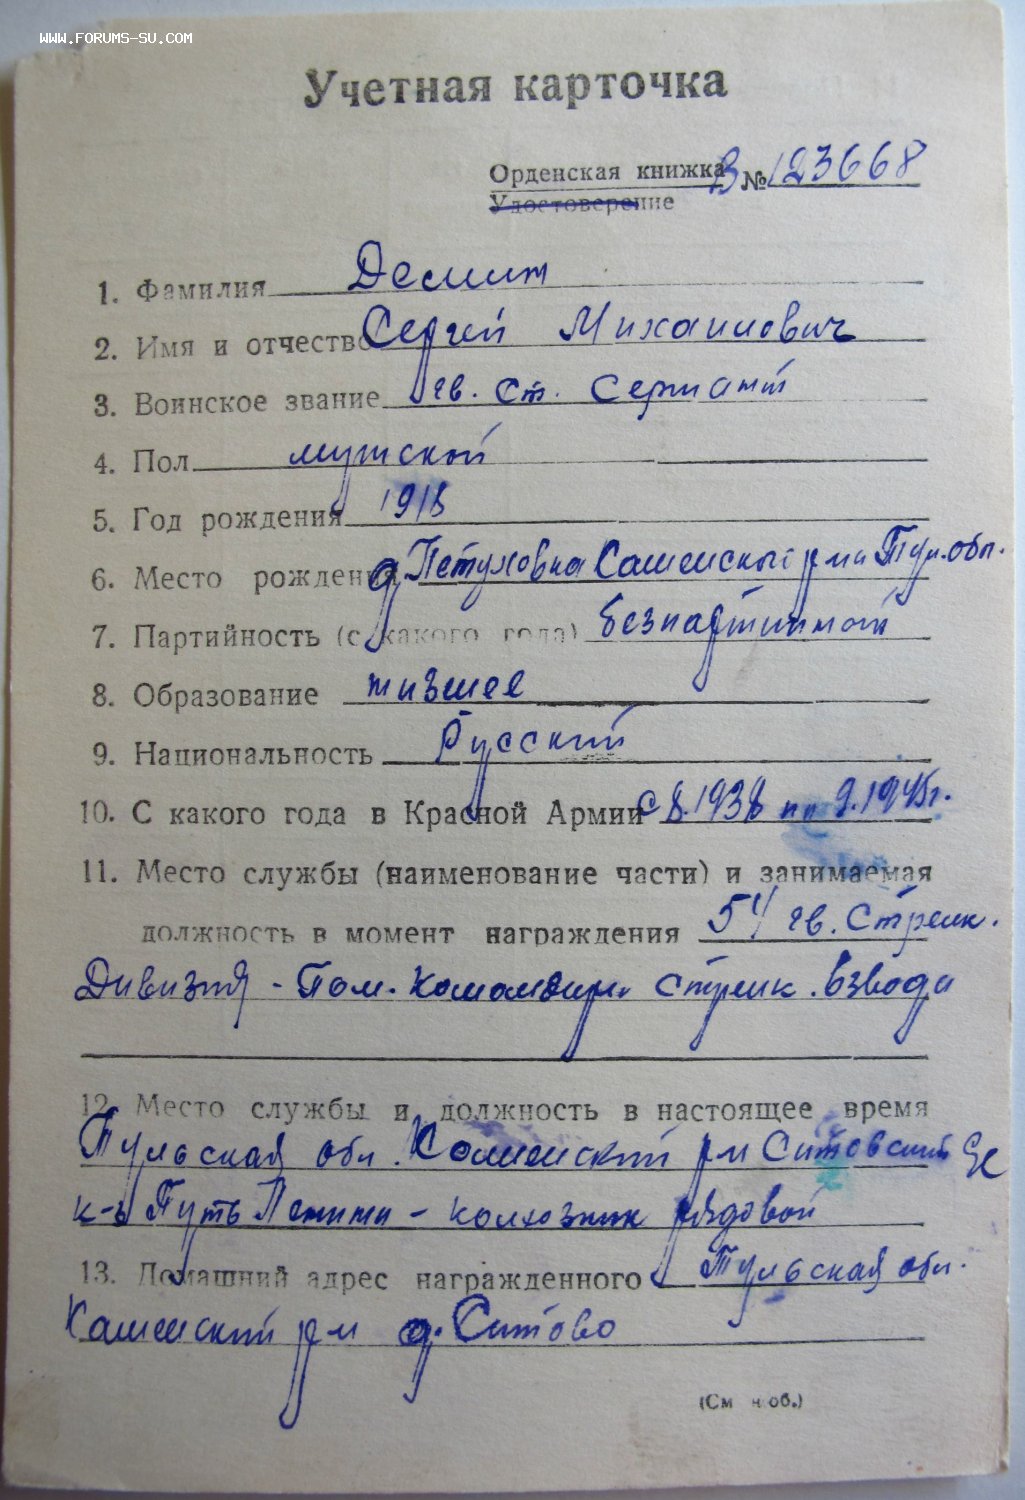 WWW.FORUMS-SU.COM
Учетная карточка
Орденская книжка В № 123668
Удостоверение
1. Фамилия
2. Имя и отчество Сергей Михаилович
3. Воинское звание гв. Ст. Сержант
4. Пол мужской
5. Год рождения 1918
6. Место рождения д. Петуховка р-на Тул. обл.
7. Партийность (с какого года) безпартийной
8. Образование низшее
9. Национальность Русский
10. С какого года в Красной Армии с 8.1938 по 9.1945г.
11. Место службы (наименование части) и занимаемая
должность в момент награждения 54 гв. Стрелк.
Дивизия - Пом. Командир. стрелк. взвода
12. Место службы и должность в настоящее время
Тульская обл. р-н Ситовский
к-з Путь Ленина - колхозник рядовой
13. Домашний адрес награжденного Тульская обл.
р-н д. Ситово
(См н об.)